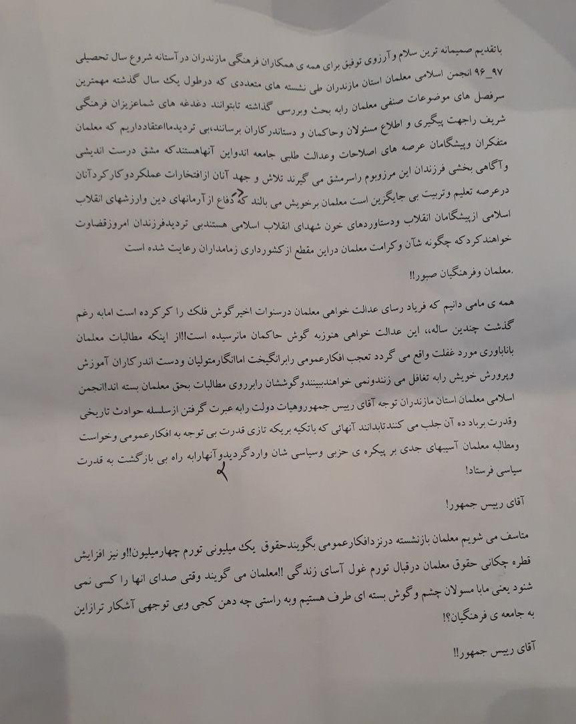 باتقدیم صمیمانه ترین سلام وآرزوی توفیق برای همه ی همکاران فرهنگی مازندران درآستانه شروع سال تحصیلی
۹۷_۹۶ انجمن اسلامی معلمان استان مازندران طی نشسته های متعددی که درطول یک سال گذشته مهمترین
سرفصل های موضوعات صنفی معلمان رابه بحث وبررسی گذاشته تابتوانند دغدغه های شماعزیزان فرهنگی
شریف راجهت پیگیری و اطلاع مسئولان وحاکمان و دستاندرکاران برسانند،بی تردیدمااعتقادداریم که معلمان
متفکران وپیشگامان عرصه های اصلاحات وعدالت طلبی جامعه اندواین آنهاهستندکه مشق درست اندیشی
وآگاهی بخشی فرزندان این مرزوبوم راسرمشق می گیرند تلاش و جهد آنان ازافتخارات عملکردوکارکردآنان
درعرصه تعلیم وتربیت بی جایگزین است معلمان برخویش می بالند که دفاع ازآرمانهای دین وارزشهای انقلاب
اسلامی ازپیشگامان انقلاب ودستاوردهای خون شهدای انقلاب اسلامی هستندبی تردیدفرزندان امروزقضاوت
خواهندکردکه چگونه شآن وکرامت معلمان دراین مقطع ازکشورداری زمامداران رعایت شده است
.معلمان وفرهنگیان صبور!!
همه ی مامی دانیم که فریاد رسای عدالت خواهی معلمان درسنوات اخیرگوش فلک را کرکرده است امابه رغم
گذشت چندین ساله،، این عدالت خواهی هنوزبه گوش حاکمان مانرسیده است!!از اینکه مطالبات معلمان
باناباوری مورد غفلت واقع می گردد تعجب افکارعمومی رابرانگیخت اماانگارمتولیان ودست اندرکاران آموزش
وپرورش خویش رابه تغافل می زنندونمی خواهندببینندوگوششان رابرروی مطالبات بحق معلمان بسته اند!انجمن
اسلامی معلمان استان مازندران توجه آقای رییس جمهوروهیات دولت رابه عبرت گرفتن ازسلسله حوادث تاریخی
وقدرت برباد ده آن جلب می کنندتابدانند آنهائی که باتکیه بریکه تازی قدرت بی توجه به افکارعمومی وخواست
ومطالبه معلمان آسیبهای جدی بر پیکره ی حزبی وسیاسی شان واردگردیدوآنهارابه راه بی بازگشت به قدرت
سیاسی فرستاد!
آقای رییس جمهور!
متاسف می شویم معلمان بازنشسته درنزدافکارعمومی بگویندحقوق یک میلیونی تورم چهارمیلیون!!و نیز افزایش
قطره چکانی حقوق معلمان درقبال تورم غول آسای زندگی !!معلمان می گویند وقتی صدای انها را کسی نمی
شنود یعنی مابا مسولان چشم وگوش بسته ای طرف هستیم وبه راستی چه دهن کجی وبی توجهی آشکار ترازاین
به جامعه ی فرهنگیان؟!
آقای رییس جمهور!!